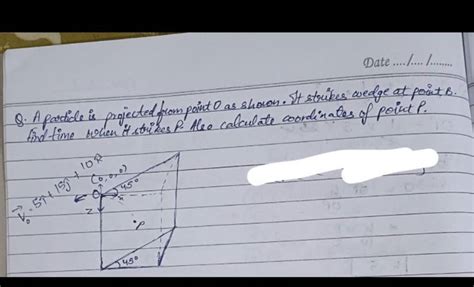 Date ..../..../........
Q. A particle is projected from point O as shown. It strikes wedge at point P.
find time when it strikes P. Also calculate coordinates of point P.
V₀ = 5î + 15ĵ + 10k̂
(0,0,0)
O
45°
x
Z
P
45°